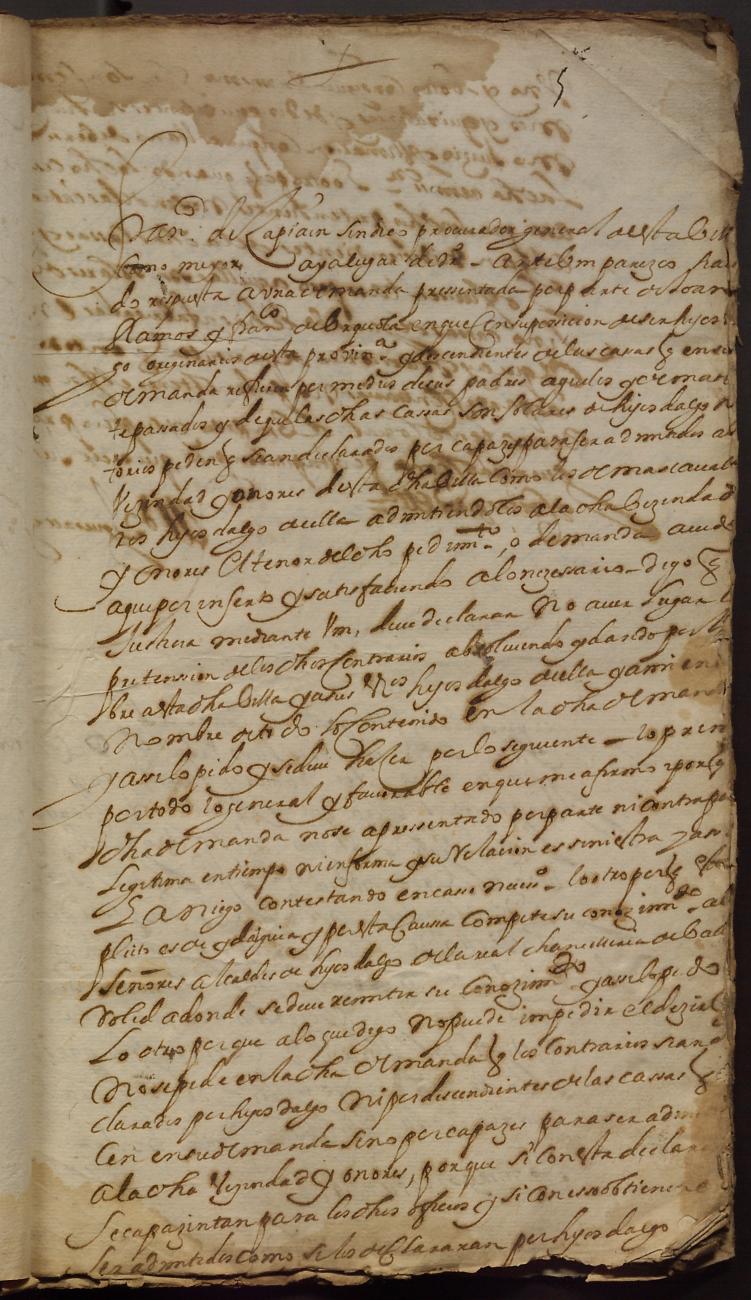 5
Fran.co de Lapiain sindico procurador general de esta Vill
como mejor aya lugar de dr.o ante Vm parezco
do respuesta a vna demanda pressentada por parte de Joan
Ramos y Fran.co de Vrquiola en que con suposicion de ser hijos
go originarios desta provin.a y descendientes de las casas q en su
demanda refieren por medio de sus padres aguelos y demas
tepasados y de que las dhas cassas son solares de hijos dalgo
torios piden q sean declarados por capazes para ser admitidos a
Vezindad y onores desta dha Villa como los demas caval
ros hijos dalgo de ella admitiendolos a la dha Vezindad
y onores El tenor del dho pedim.to, o demanda auido
aqui por inserto y satisfaciendo a lo nezessario digo q
Justicia mediante Vm, deue declarar no auer lugar
pretension de los dhos contrarios absoluiendo y dando por li
bre a esta dha Villa y a sus Vos hijos dalgo de ella y a mi en
nombre de todo lo contenido en la dha deman
y assi lo pido y se deue hazer por lo siguiente lo prim
por todo lo general y fauorable en que me afirmo y por q
dha demanda no se a pressentado por parte ni contra par
legitima en tiempo ni en forma y su Relacion es siniestra
La niego contestando en caso neces.o lo otro por q este
plito es de ydalguia y por esta caussa compete su conozim.to a l
señores alcaldes de hijos dalgo de la real chancilleria de Valla
dolid adonde se deue remitir su conozim.to y assi lo pido
Lo otro porque a lo que digo no puede impedir el dezir
no se pide en la dha demanda q los contrarios sean de
clarados por hijos dalgo ni por descendientes de las cassas q
cen en su demanda sino por capazes para ser admi
a la dha Vezindad y onores, porque si con esta declara
se capazitan para los dhos oficios y si con esso obtienen
ser admitidos como si los declararan por hijos dalgo